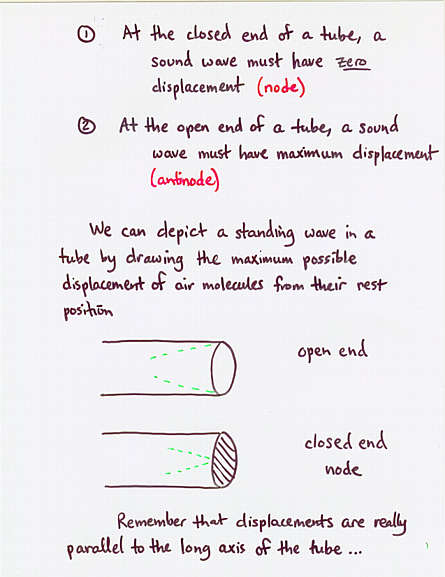 ① At the closed end of a tube, a
sound wave must have zero
displacement (node)
② At the open end of a tube, a sound
wave must have maximum displacement
(antinode)
We can depict a standing wave in a
tube by drawing the maximum possible
displacement of air molecules from their rest
position
open end
closed end
node
Remember that displacements are really
parallel to the long axis of the tube ...